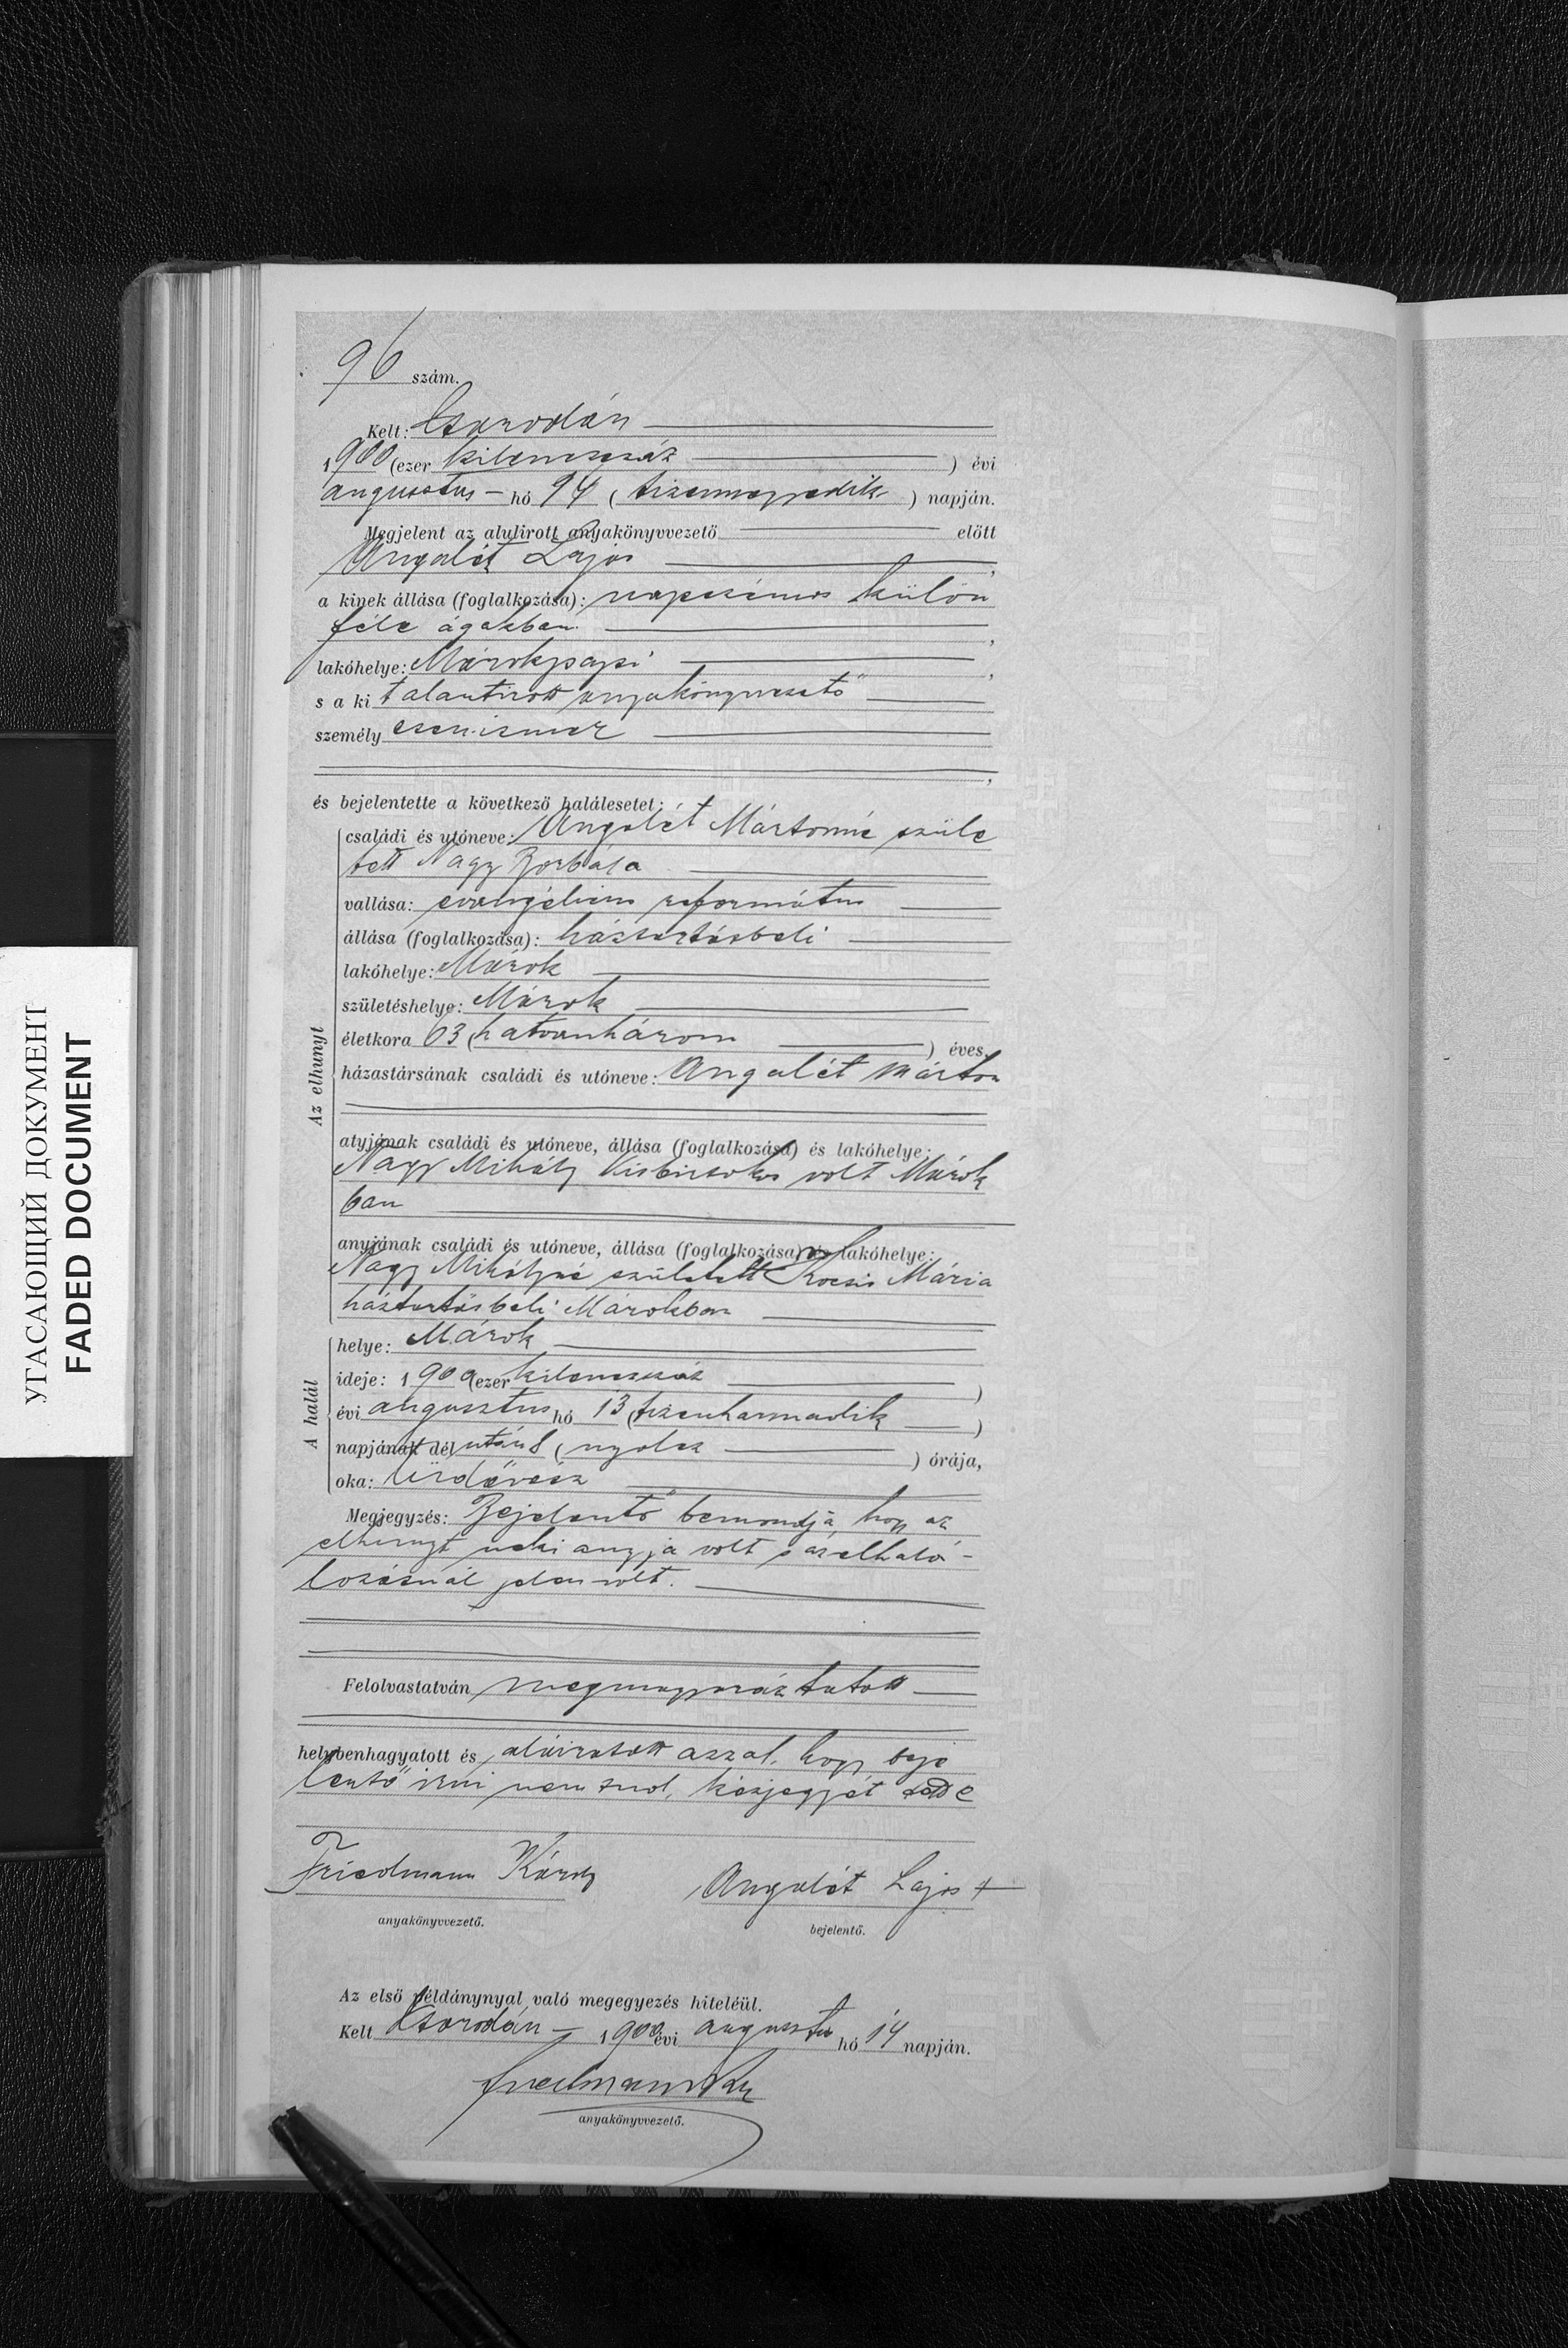 96 szám.
Kelt: Csarodán
1900 (ezer kilenczszáz ) évi
augusztus hó 14 ( tizennegyedik ) napján.
Megjelent az alulirott anyakönyvvezető előtt
Angalét Lajos ,
a kinek állása (foglalkozása): napszámos külön
féle ágakban ,
lakóhelye: Márokpapi ,
s a kit alantirott anyakönyvvezető
személyesen ismer
,
és bejelentette a következő halálesetet:
Az elhunyt
családi és utóneve: Angalét Mártonné szüle
tett Nagy Borbála
vallása: evangélium református
állása (foglalkozása): háztartásbeli
lakóhelye: Márok
születéshelye: Márok
életkora 63 (hatvanhárom ) éves,
házastársának családi és utóneve: Angalét Márton
atyjának családi és utóneve, állása (foglalkozása) és lakóhelye:
Nagy Mihály kisbirtokos volt Márok
ban
anyjának családi és utóneve, állása (foglalkozása) és lakóhelye:
Nagy Mihályné született Kocsis Mária
háztartásbeli Márokban
A halál
helye: Márok
ideje: 1900 (ezer kilenczszáz )
évi augusztus hó 13 (tizenharmadik )
napjának dél után 8 ( nyolcz ) órája,
oka:
Megjegyzés: Bejelentő bemondja, hogy az
elhunyt neki anyja volt s az elhalá-
lozásnál jelen volt.
Felolvastatván megmagyaráztatott
helybenhagyatott és aláiratott azzal, hogy beje
lentő irni nem tud, kézjegyét
Friedmann Károly
anyakönyvvezető.
Angalét Lajos +
bejelentő.
Az első példánynyal való megegyezés hiteléül.
Kelt Csarodán 1900 évi augusztus hó 14 napján.
Friedmann
anyakönyvvezető.
УГАСАЮЩИЙ ДОКУМЕНТ
FADED DOCUMENT